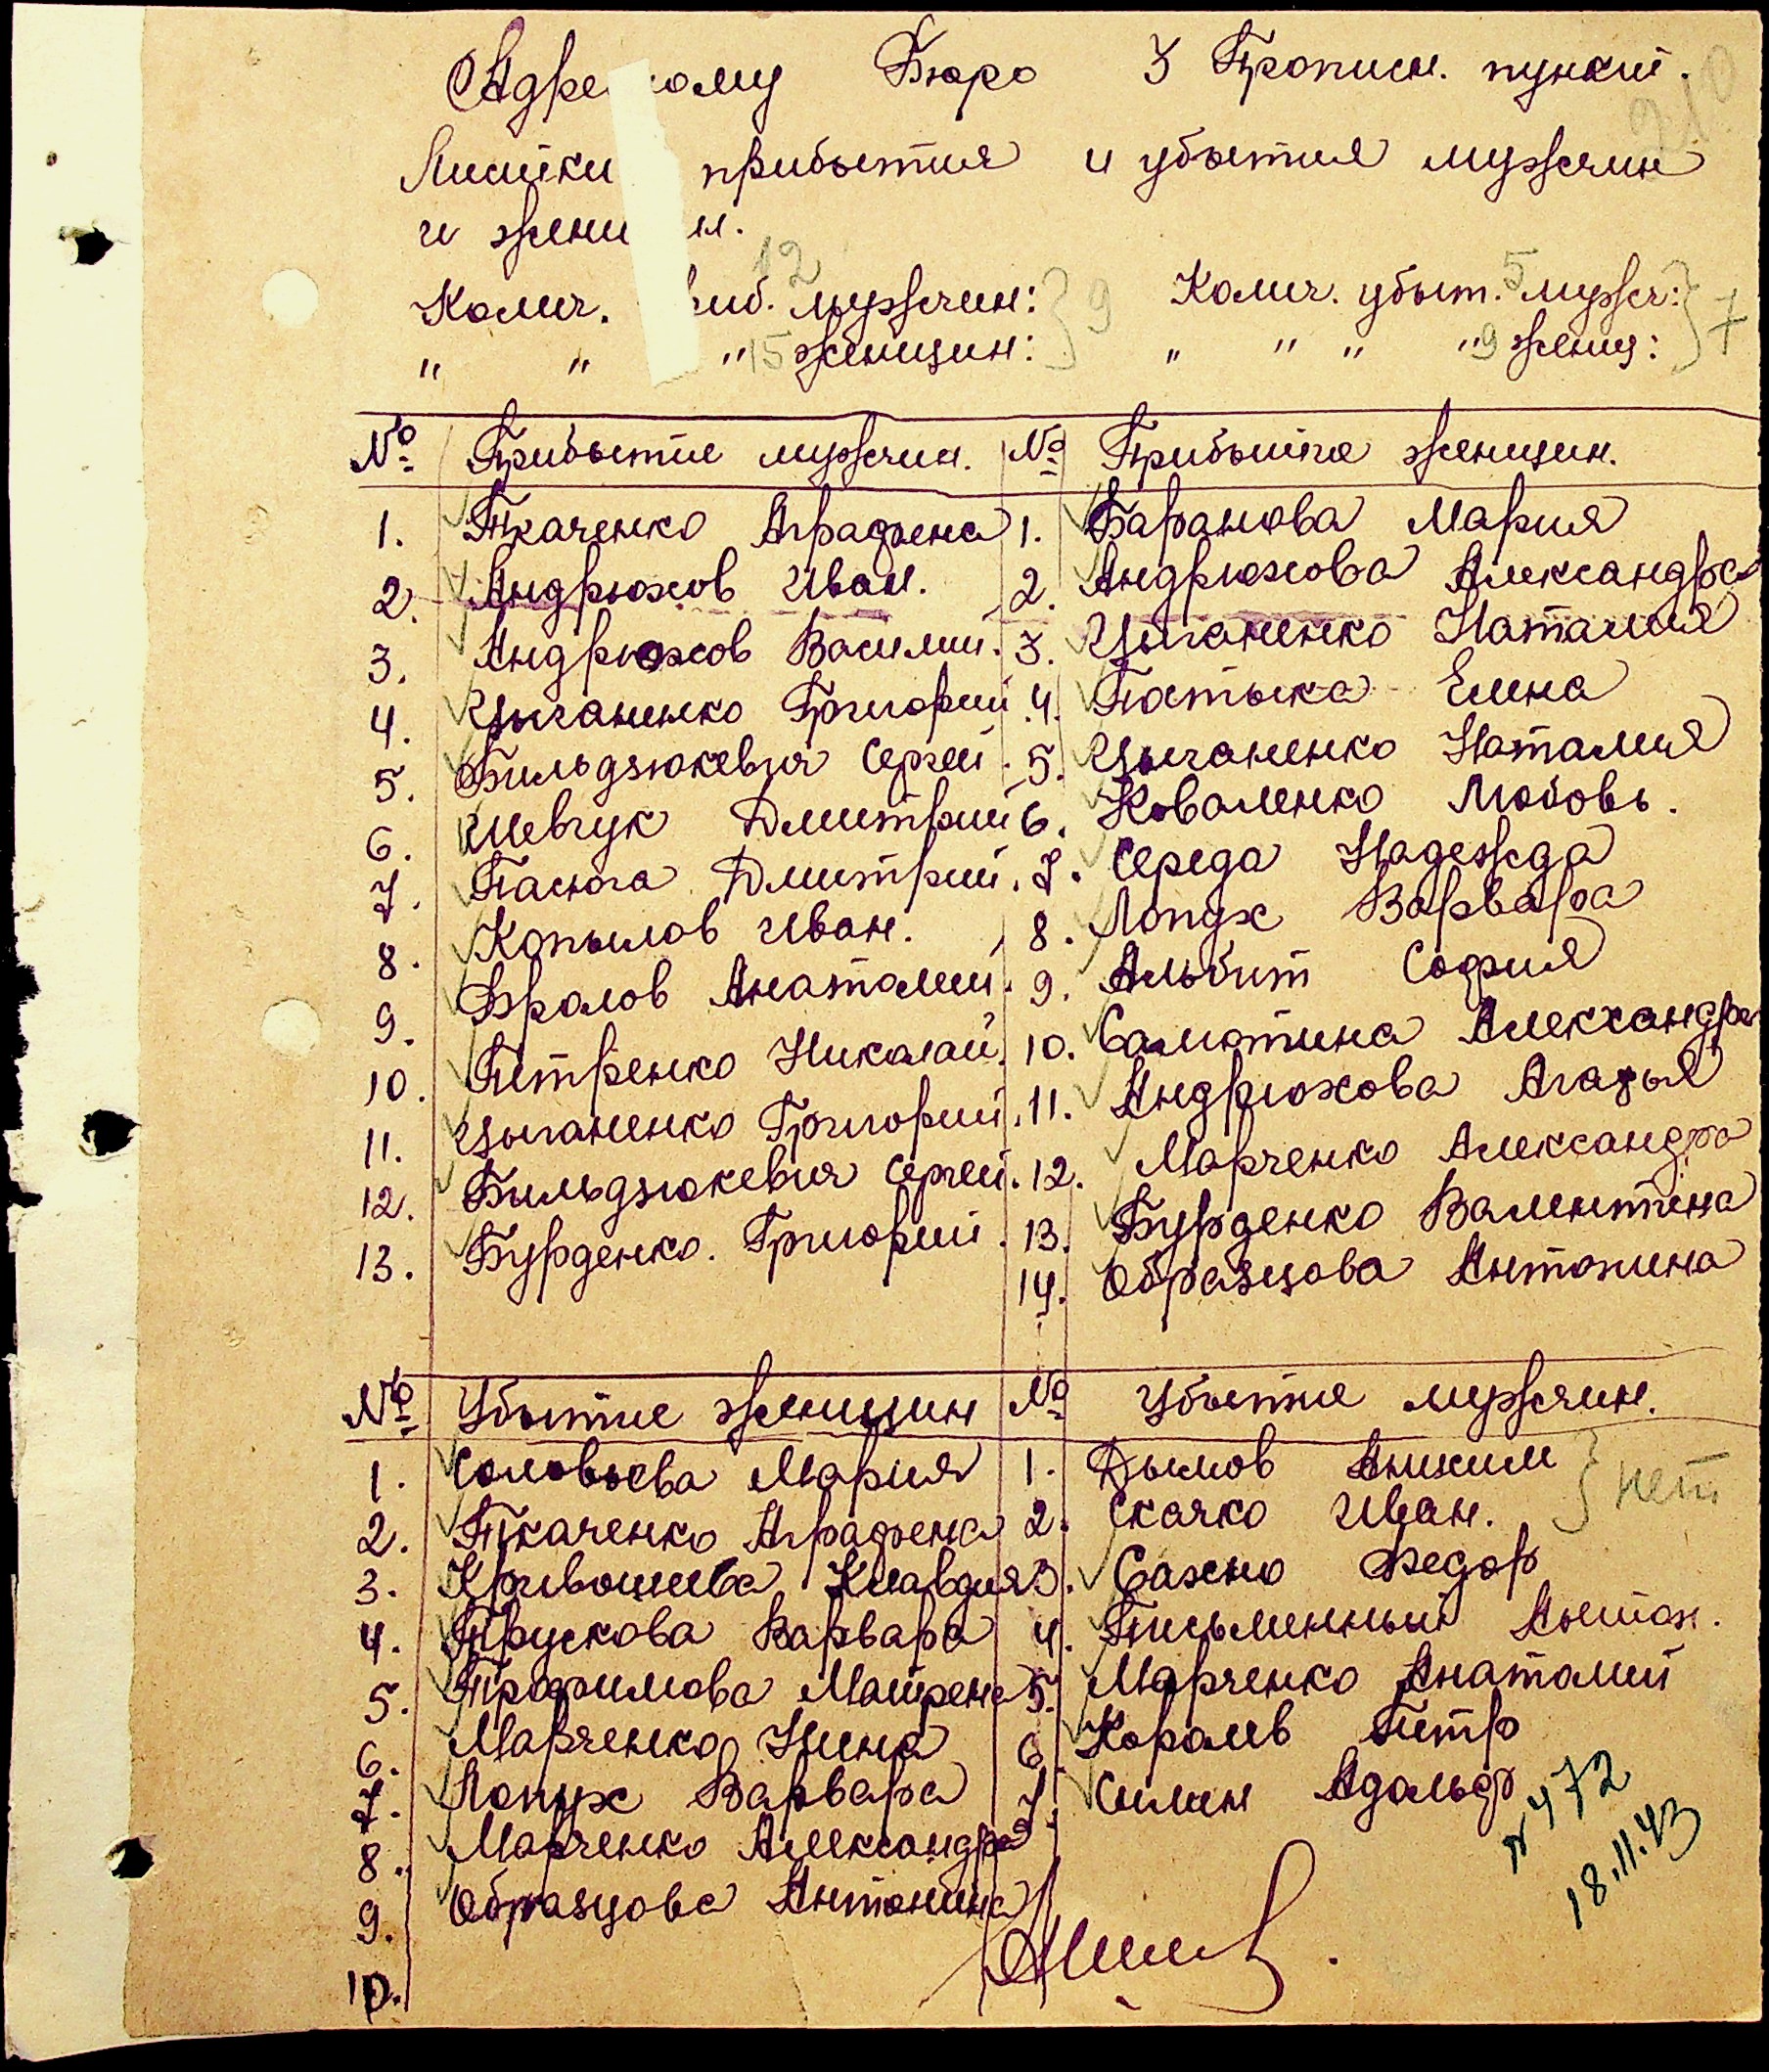 Адре ому Бюро 3 Прописн. пункт.
210
Листки прибытия и убытия мужчин
и женщ н.
Колич. иб. 12 мужчин: } 9 Колич. убыт. 5 мужч: } 7
" " " 15 женщин: " " " " 9 женщ:
№ Прибытие мужчин. № Прибытие женщин.
1. Ткаченко Аграфена 1. Баранова Мария
2. Андрюхов Иван. 2. Андрюхова Александра
3. Андрюхов Василий. 3. Цыганенко Наталия
4. Цыганенко Григорий 4. Патыка Елена
5. Бильдзюкевич Сергей. 5. Цыганенко Наталия
6. Шевчук Дмитрий 6. Коваленко Любовь.
7. Пасюга Дмитрий. 7. Середа Надежда
8. Копылов Иван. 8. Лопух Варвара
9. Фролов Анатолий. 9. Альбит София
10. Петренко Николай. 10. Саматина Александра
11. Цыганенко Григорий. 11. Андрюхова Агафья
12. Бильдзюкевич Сергей. 12. Марченко Александра
13. Бурденко. Григорий. 13. Бурденко Валентина
14. Образцова Антонина
№ Убытие женщин № Убытие мужчин.
1. Соловьева Мария 1. Дымов Анихим } нет
2. Ткаченко Аграфена 2. Скачко Иван.
3. Кривошеева Клавдия 3. Сахно Федор
4. Трускова Варвара 4. Письменный Антон.
5. Трофимова Матрена 5. Марченко Анатолий
6. Марченко Нина 6. Королев Петр
7. Лопух Варвара 7. Силин Адольф
8. Марченко Александра
9. Образцова Антонина
10.
№ 472
18.11.43